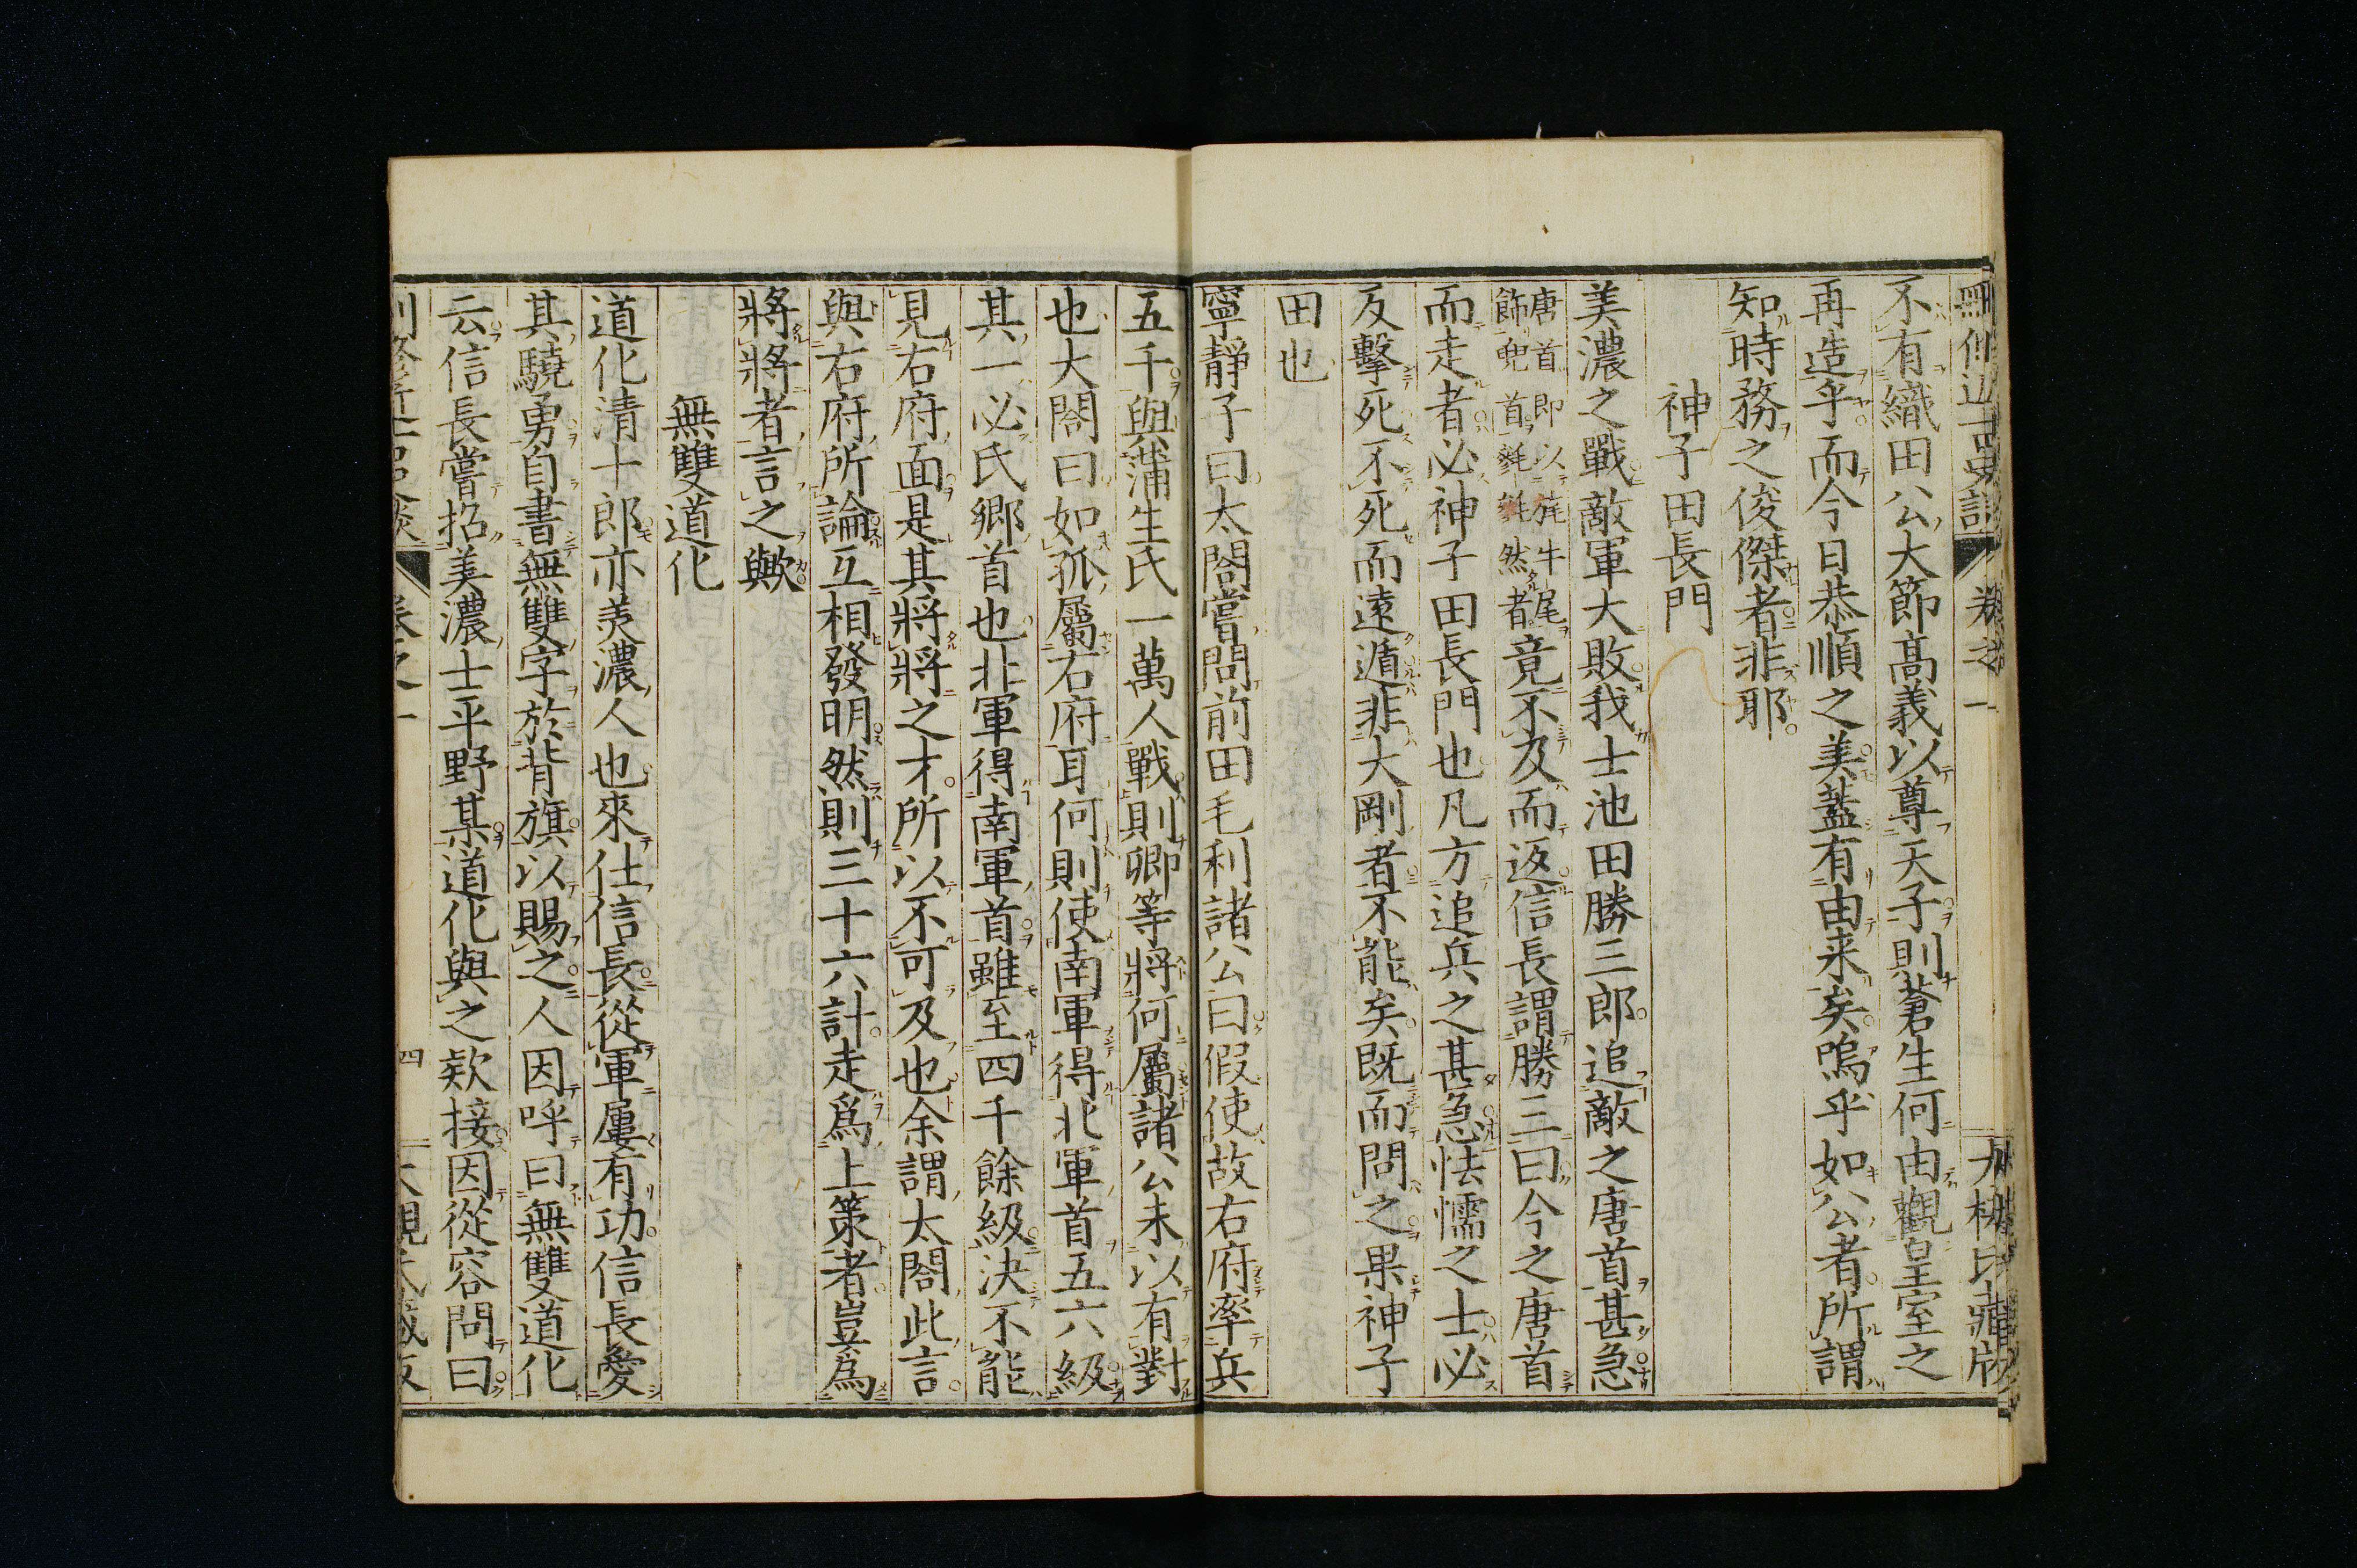 不有織田公大節髙義以尊天子則蒼生何由觀皇室之
再造乎而今日恭順之美蓋有由来矣嗚乎如公者所謂
知時務之俊傑者非耶
神子田長門
美濃之戰敵軍大敗我士池田勝三郎追敵之唐首甚急
唐首即以旄牛尾
飾兜首毿毿然者
竟不及而返信長謂勝三曰今之唐首
而走者必神子田長門也凡方追兵之甚急怯懦之士必
反擊死不死而遠遁非大剛者不能矣既而問之果神子
田也
寧靜子曰太閤嘗問前田毛利諸公曰假使故右府率兵
五千與蒲生氏一萬人戰則卿等將何屬諸公未以有對
也大閤曰如孤屬右府耳何則使南軍得北軍首五六級
其一必氏鄉首也非軍得南軍首雖至四千餘級決不能
見右府面是其將將之才所以不可及也余謂太閤此言
與右府所論互相發明然則三十六計走爲上策者豈爲
將將者言之歟
無雙道化
道化清十郎亦美濃人也來仕信長從軍屢有功信長愛
其驍勇自書無雙字於背旗以賜之人因呼曰無雙道化
云信長嘗招美濃士平野某道化與之欵接因從容問曰
卷之一
四